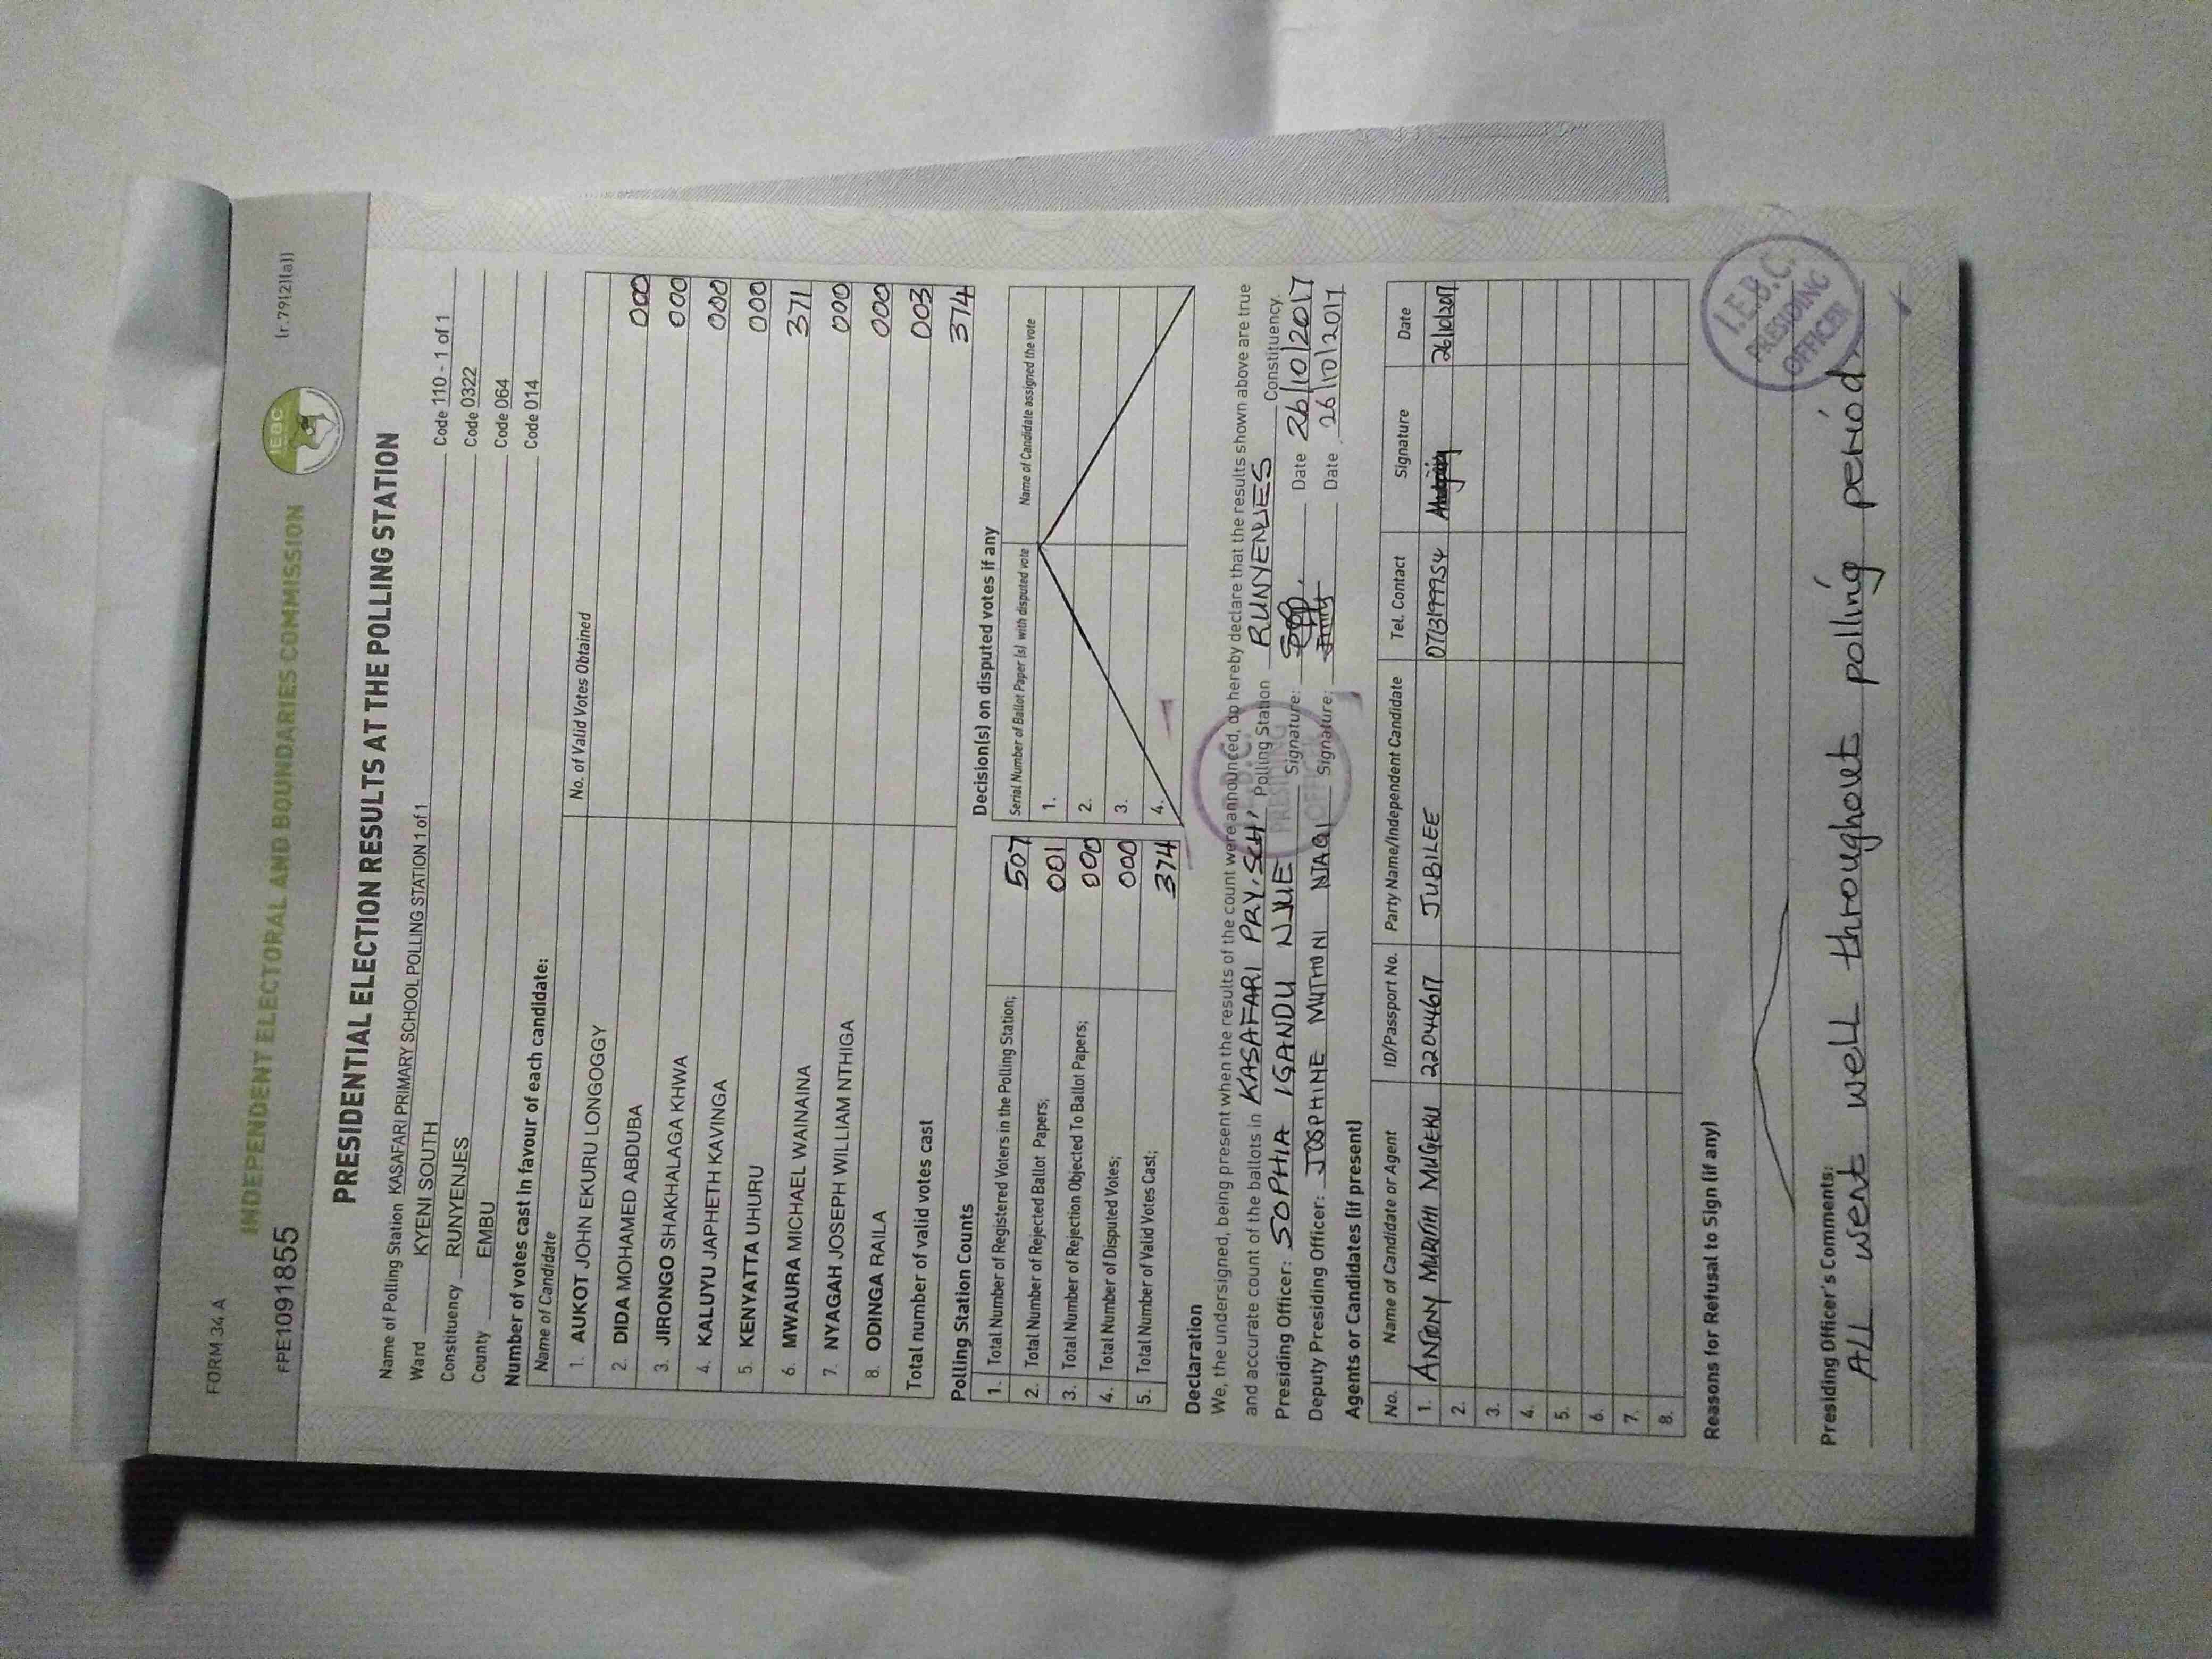 FORM 34 A
(r.79(2)(a))
FPE1091855
INDEPENDENT ELECTORAL AND BOUNDARIES COMMISSION
IEBC
PRESIDENTIAL ELECTION RESULTS AT THE POLLING STATION
Name of Polling Station KASAFARI PRIMARY SCHOOL POLLING STATION 1 of 1 Code 110 - 1 of 1
Ward KYENI SOUTH Code 0322
Constituency RUNYENJES Code 064
County EMBU Code 014
Number of votes cast in favour of each candidate:
Name of Candidate No. of Valid Votes Obtained
1. AUKOT JOHN EKURU LONGOGGY 000
2. DIDA MOHAMED ABDUBA 000
3. JIRONGO SHAKHALAGA KHWA 000
4. KALUYU JAPHETH KAVINGA 000
5. KENYATTA UHURU 371
6. MWAURA MICHAEL WAINAINA 000
7. NYAGAH JOSEPH WILLIAM NTHIGA 000
8. ODINGA RAILA 003
Total number of valid votes cast 374
Polling Station Counts
1. Total Number of Registered Voters in the Polling Station; 507
2. Total Number of Rejected Ballot Papers; 001
3. Total Number of Rejection Objected To Ballot Papers; 000
4. Total Number of Disputed Votes; 000
5. Total Number of Valid Votes Cast; 374
Decision(s) on disputed votes if any
Serial Number of Ballot Paper (s) with disputed vote Name of Candidate assigned the vote
1.
2.
3.
4.
Declaration
We, the undersigned, being present when the results of the count were announced, do hereby declare that the results shown above are true
and accurate count of the ballots in KASAFARI PRY. SCH. Polling Station RUNYENJES Constituency.
Presiding Officer: SOPHIA IGANDU NJUE Signature: Date 26/10/2017
Deputy Presiding Officer: JOSPHINE MUTHONI NJAGI Signature: Date 26/10/2017
I.E.B.C. PRESIDING OFFICER
Agents or Candidates (if present)
No. Name of Candidate or Agent ID/Passport No. Party Name/Independent Candidate Tel. Contact Signature Date
1. ANTONY MURITHI MUGEKU 22044617 JUBILEE 0713199954 26/10/2017
2.
3.
4.
5.
6.
7.
8.
Reasons for Refusal to Sign (if any)
Presiding Officer's Comments:
ALL went well throughout polling period.
I.E.B.C. PRESIDING OFFICER